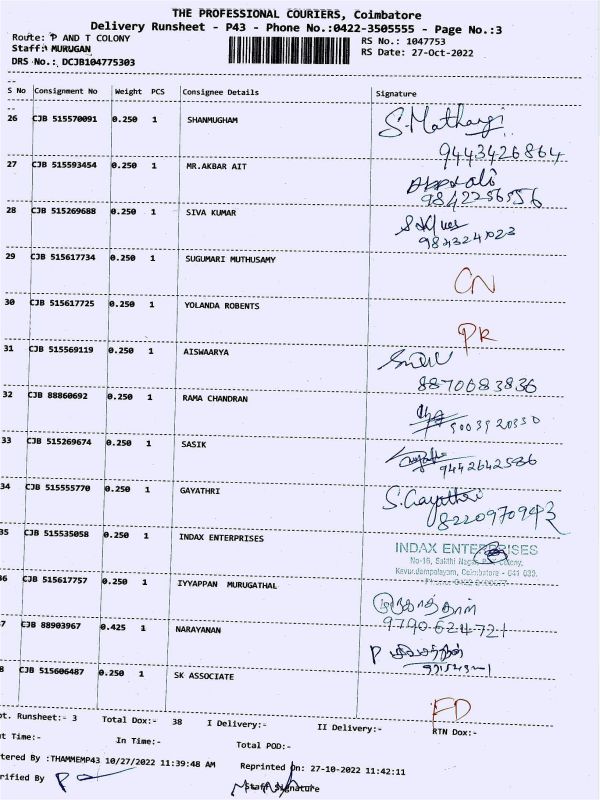 THE PROFESSIONAL COURIERS, Coimbatore
Delivery Runsheet - P43 - Phone No.:0422-3505555 - Page No.:3
Route: P AND T COLONY
RS No.: 1047753
Staff: MURUGAN
RS Date: 27-Oct-2022
DRS No.: DCJB104775303
S No Consignment No Weight PCS Consignee Details Signature
26 CJB 515570091 0.250 1 SHANMUGHAM S.Mathangi
9443426864
27 CJB 515593454 0.250 1 MR.AKBAR AIT
9842256556
28 CJB 515269688 0.250 1 SIVA KUMAR
29 CJB 515617734 0.250 1 SUGUMARI MUTHUSAMY
CN
30 CJB 515617725 0.250 1 YOLANDA ROBENTS
PR
31 CJB 515569119 0.250 1 AISWAARYA
8870683836
32 CJB 88860692 0.250 1 RAMA CHANDRAN
33 CJB 515269674 0.250 1 SASIK
9442642586
34 CJB 515555770 0.250 1 GAYATHRI S.Gayathri
8220970943
35 CJB 515535058 0.250 1 INDAX ENTERPRISES
INDAX ENTERPRISES
No-16, Sakthi Nagar, Colony,
Coimbatore - 641 035.
36 CJB 515617757 0.250 1 IYYAPPAN MURUGATHAL
9790624721
7 CJB 88903967 0.425 1 NARAYANAN
P
8 CJB 515606487 0.250 1 SK ASSOCIATE
FD
ot. Runsheet:- 3 Total Dox:- 38 I Delivery:- II Delivery:- RTN Dox:-
ut Time:- In Time:- Total POD:-
tered By :THAMMEMP43 10/27/2022 11:39:48 AM Reprinted On: 27-10-2022 11:42:11
rified By Staff Signature